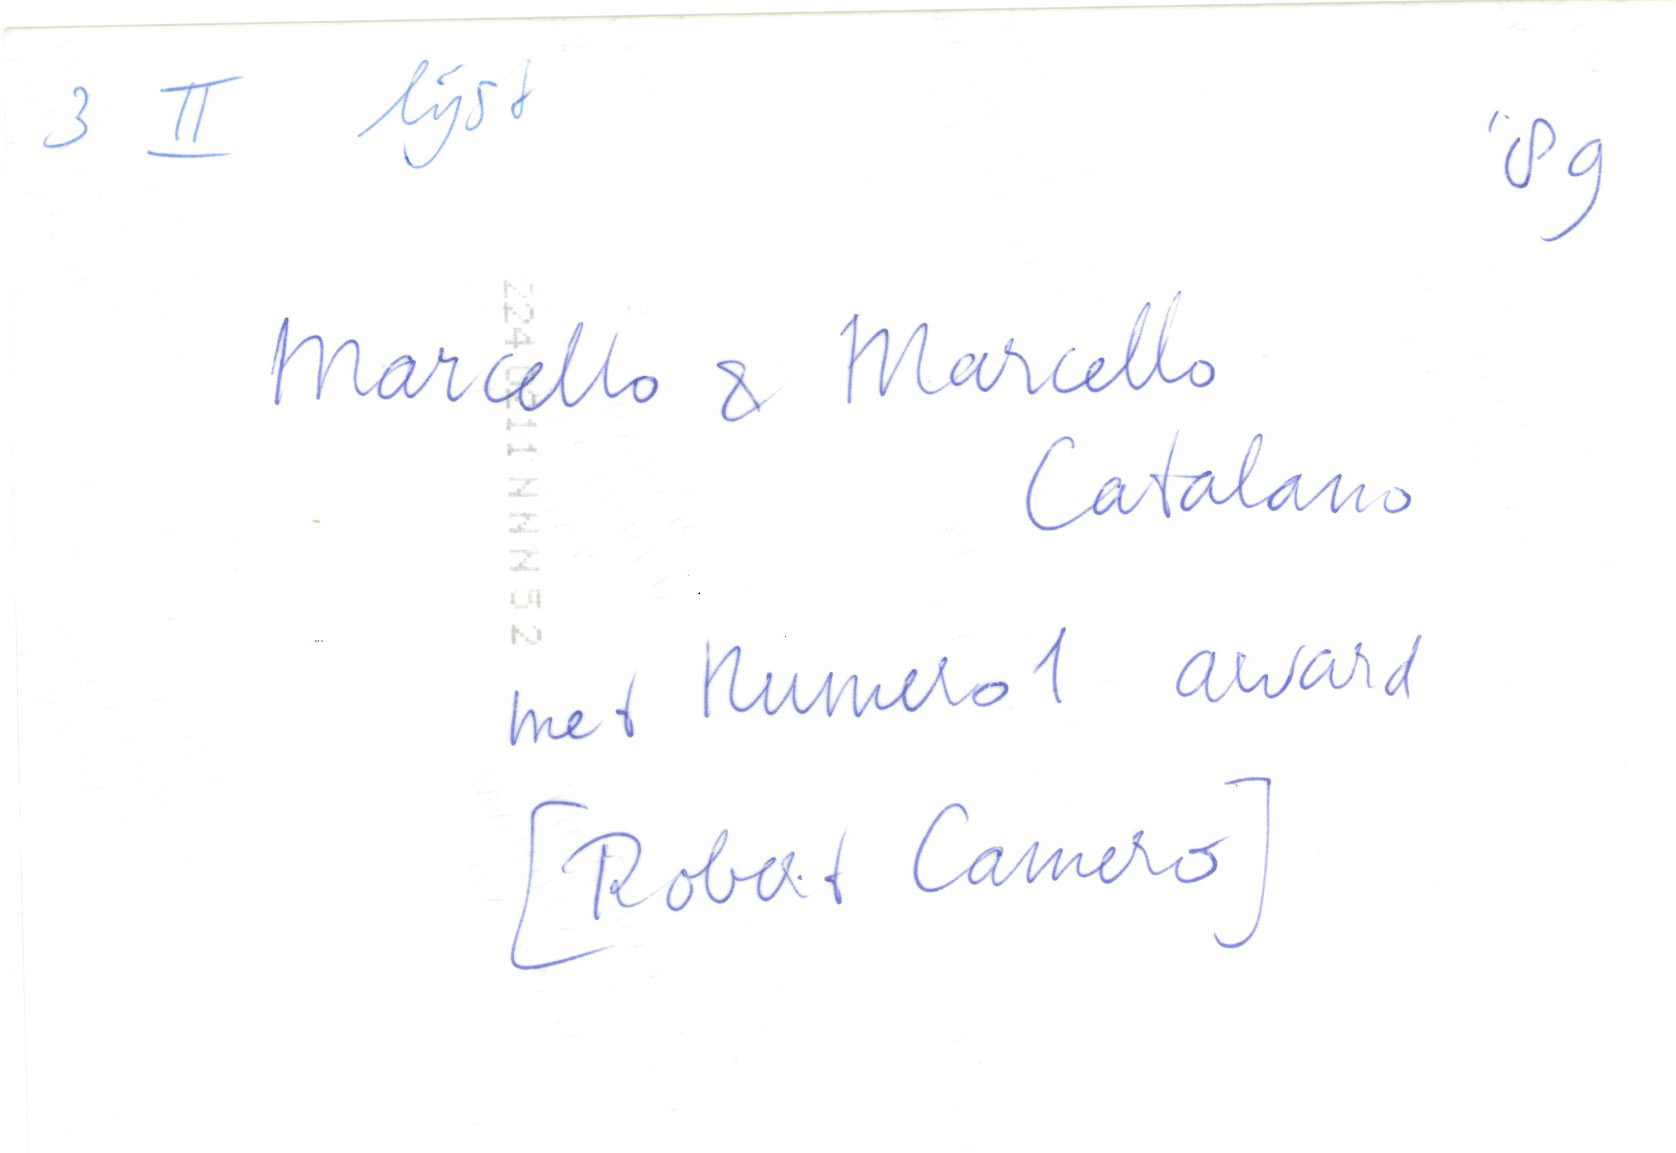 3 II lijst
'89
Marcello & Marcello
Catalano
met Numero 1 award
[Robert Camero]